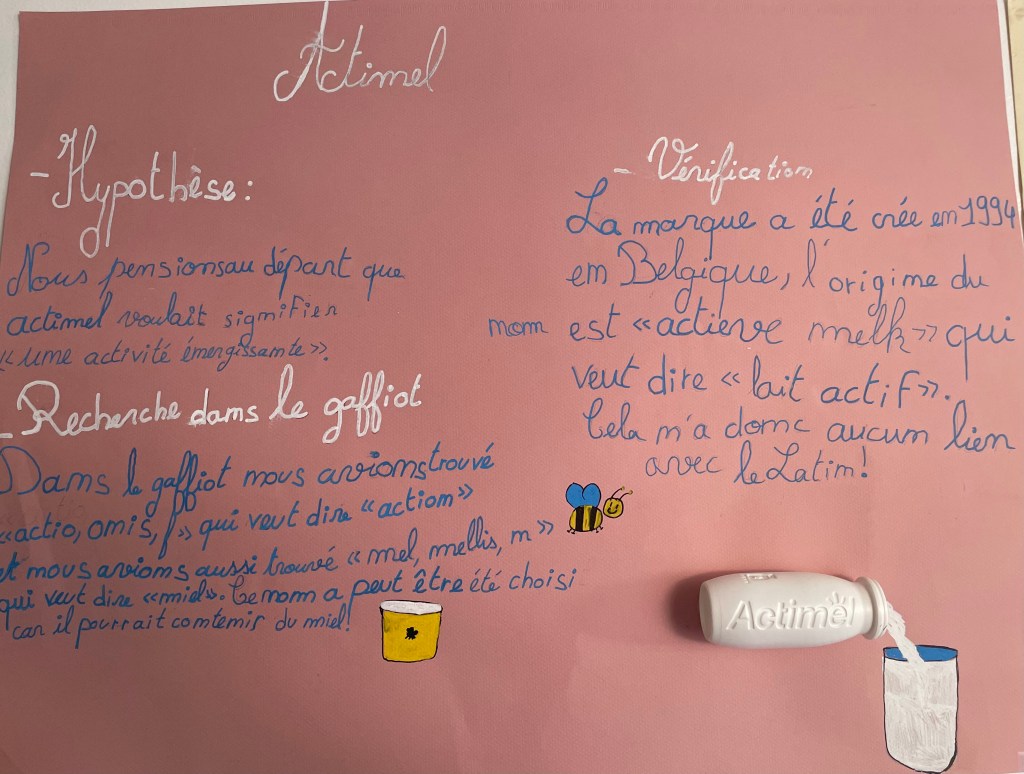 Actimel
- Hypothèse :
Nous pensions au départ que
actimel voulait signifier
« une activité émergissante ».
- Recherche dans le gaffiot
Dans le gaffiot nous avions trouvé
«actio, onis, f» qui veut dire «action»
et nous avions aussi trouvé « mel, mellis, n »
qui veut dire «miel». Ce nom a peut être été choisi
car il pourrait contenir du miel!
- Vérification
La marque a été crée en 1994
en Belgique, l'origine du
nom est «actieve melk» qui
veut dire « lait actif».
Cela n'a donc aucun lien
avec le Latin!
Actimel